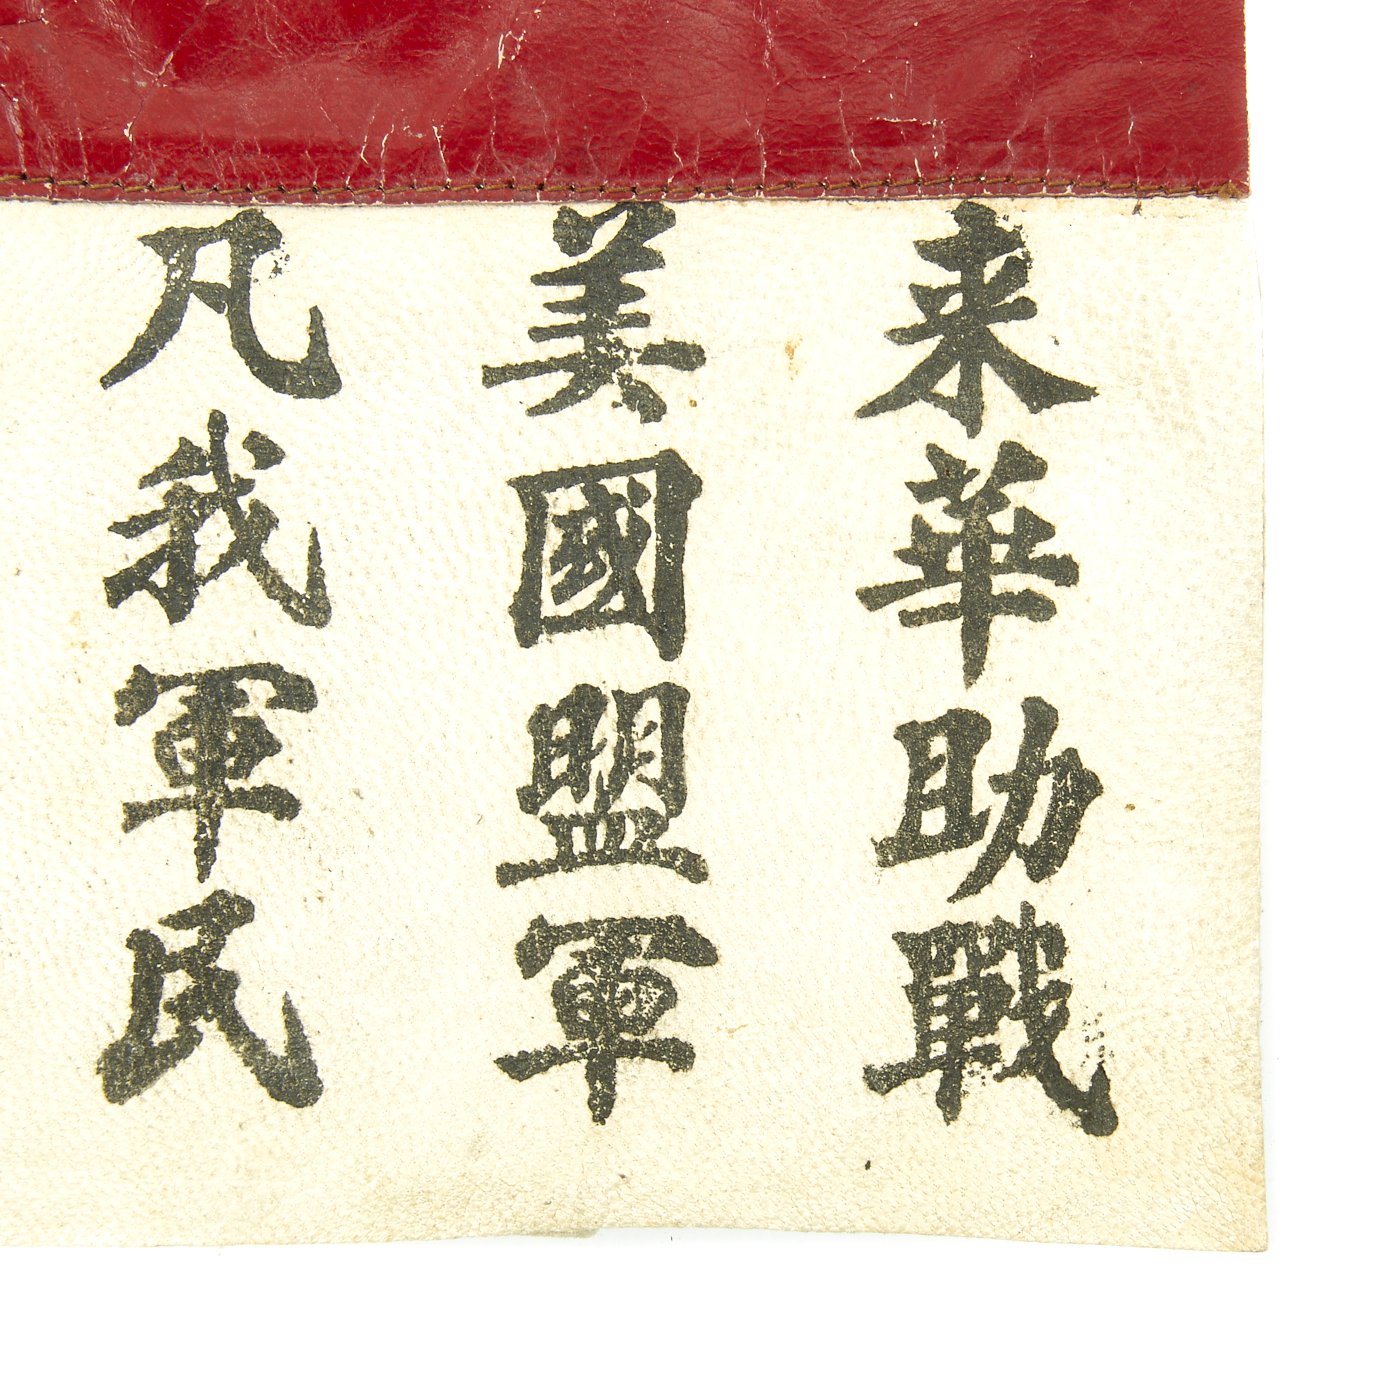 来華助戰
美國盟軍
凡我軍民